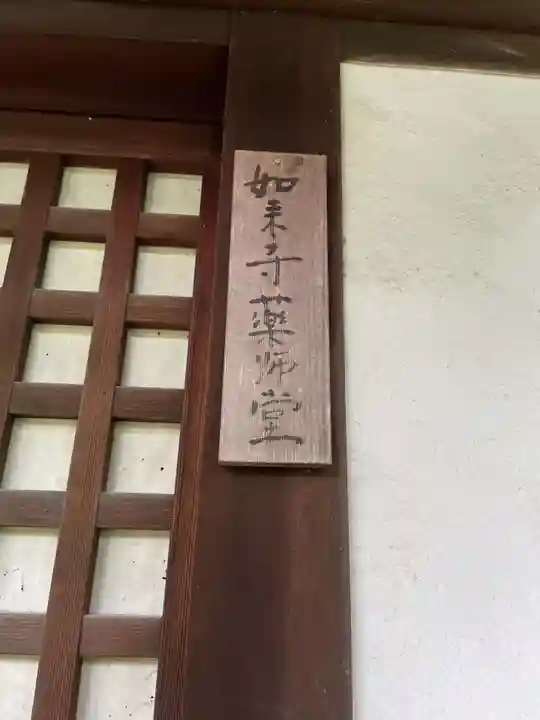 如来寺薬師堂